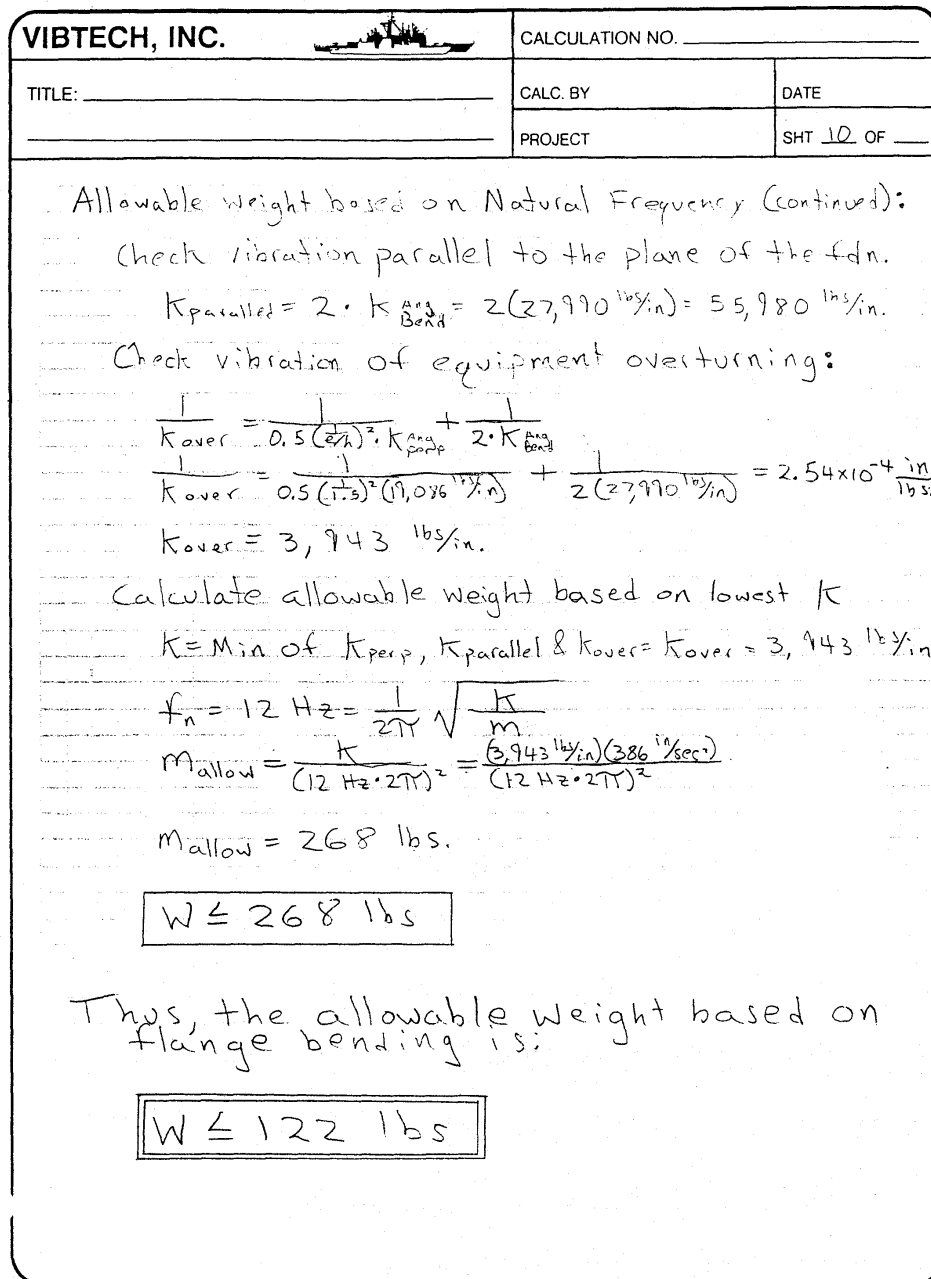 VIBTECH, INC.
CALCULATION NO.
TITLE:
CALC. BY
DATE
PROJECT
SHT 10 OF
Allowable weight based on Natural Frequency (continued):
Check vibration parallel to the plane of the fdn.
Kparallel = 2 · K Ang Bend = 2(27,990 lbs/in) = 55,980 lbs/in.
Check vibration of equipment overturning:
1/Kover = 1/(0.5 (1/(e/h))² · K Ang perp) + 1/(2 · K Ang Bend)
1/Kover = 1/(0.5 (1/1.5)² (19,086 lbs/in)) + 1/(2 (27,990 lbs/in)) = 2.54x10⁻⁴ in/lbs
Kover = 3,943 lbs/in.
Calculate allowable weight based on lowest K
K = Min of Kperp, Kparallel & Kover = Kover = 3,943 lbs/in
fn = 12 Hz = 1/2π √K/m
Mallow = K/(12 Hz · 2π)² = (3,943 lbs/in)(386 in/sec²)/(12 Hz · 2π)²
Mallow = 268 lbs.
W ≤ 268 lbs
Thus, the allowable weight based on
flange bending is:
W ≤ 122 lbs